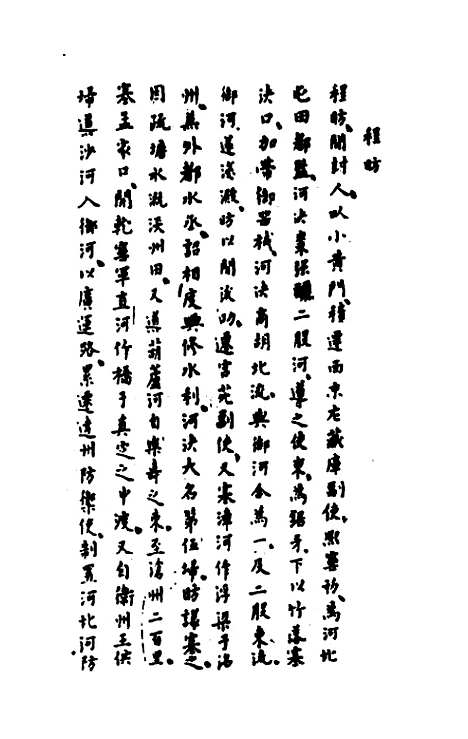 程昉
程昉、開封人、以小黄門、積遷西京左藏庫副使、熙寧初、爲河北
屯田都監、河决棗强、釃二股河、導之使東、爲鋸牙、下以竹落塞
决口、加帶御器械、河决商胡北流、與御河合爲一、及二股東流、
御河遂淺澱、昉以開浚功、遷宮苑副使、又塞漳河作浮梁于洺
州、兼外都水丞、詔相度興修水利、河决大名第伍埽、昉議塞之、
因疏塘水溉深州田、又導葫蘆河自樂壽之東、至滄州二百里、
塞孟家口、開乾寧軍直河作橋于真定之中渡、又自衛州王供
埽導沙河入御河、以廣運路、累遷達州防禦使、制置河北河防